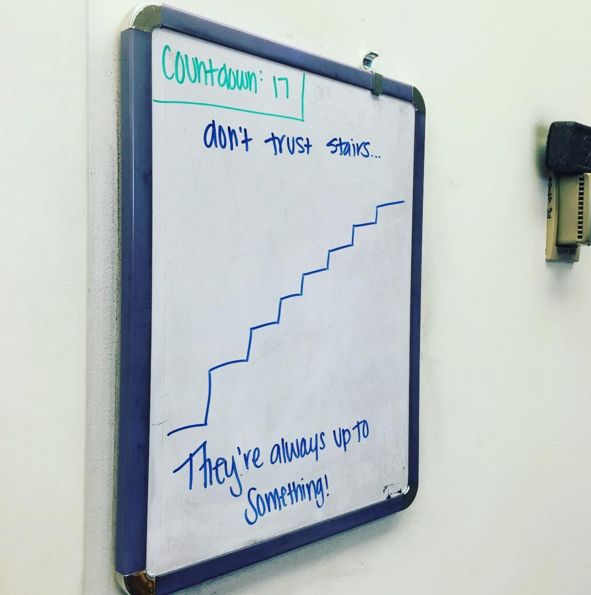 Countdown: 17
don't trust stairs...
They're always up to
Something!